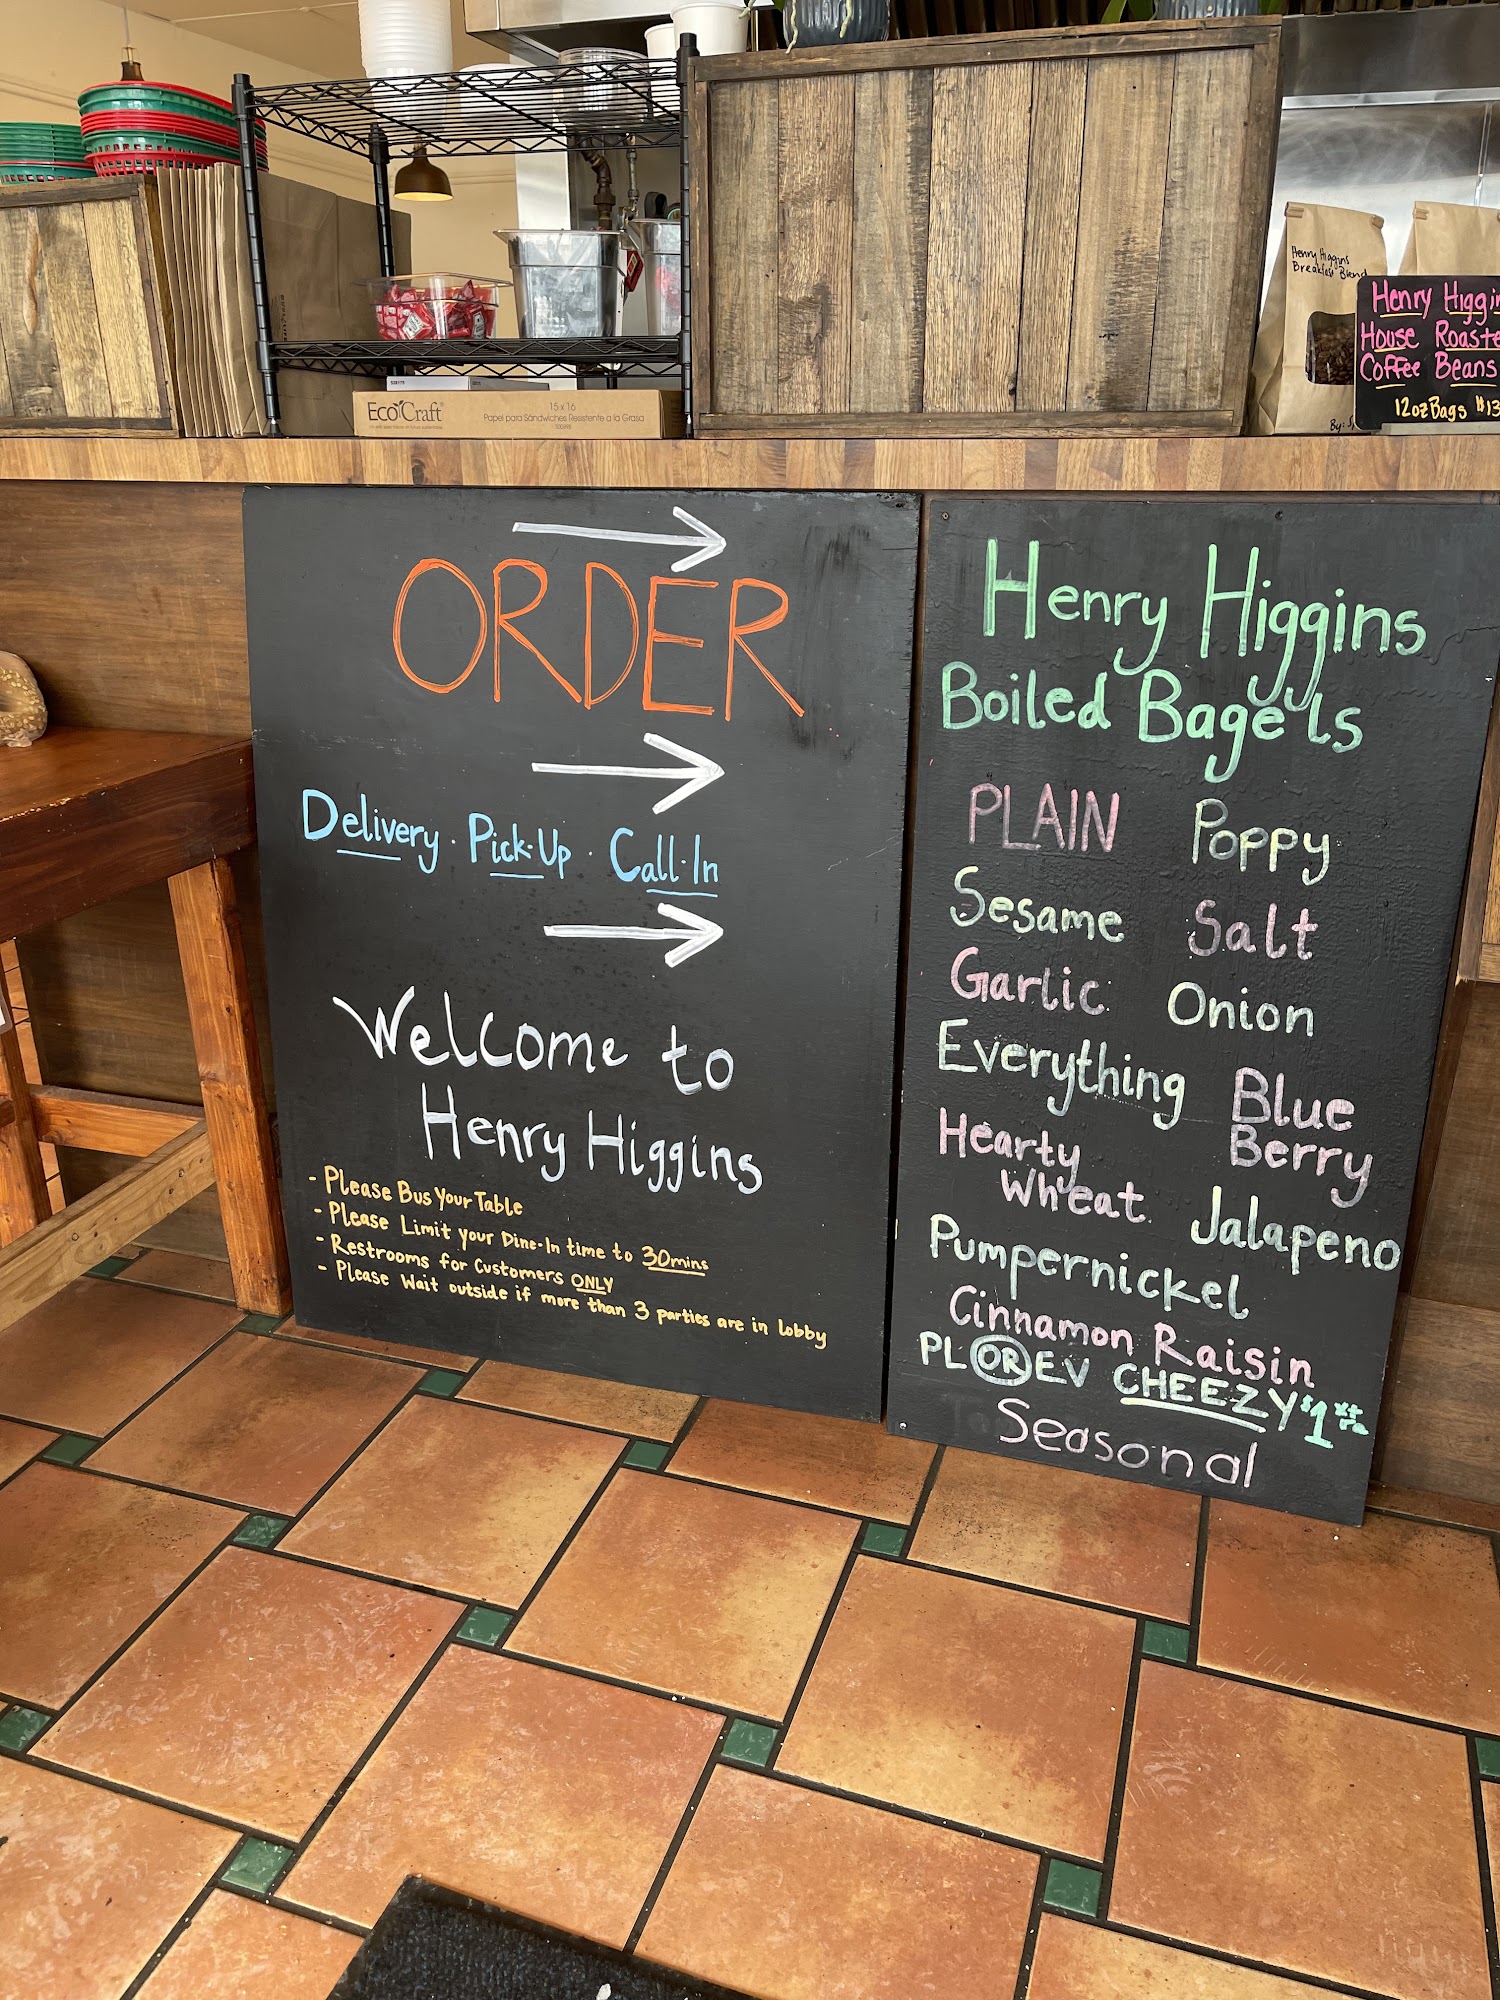 Henry Higgins
Breakfast Blend
Henry Higgin
House Roaste
Coffee Beans
12oz Bags $13
By:
EcoCraft
15 x 16
Papel para Sándwiches Resistente a la Grasa
ORDER
Delivery · Pick-Up · Call-In
Welcome to
Henry Higgins
- Please Bus Your Table
- Please Limit your Dine-In time to 30mins
- Restrooms for Customers ONLY
- Please Wait outside if more than 3 parties are in lobby
Henry Higgins
Boiled Bagels
PLAIN Poppy
Sesame Salt
Garlic Onion
Everything Blue
Berry
Hearty
Wheat Jalapeno
Pumpernickel
Cinnamon Raisin
PL OR EV CHEEZY $1 xtra
Seasonal